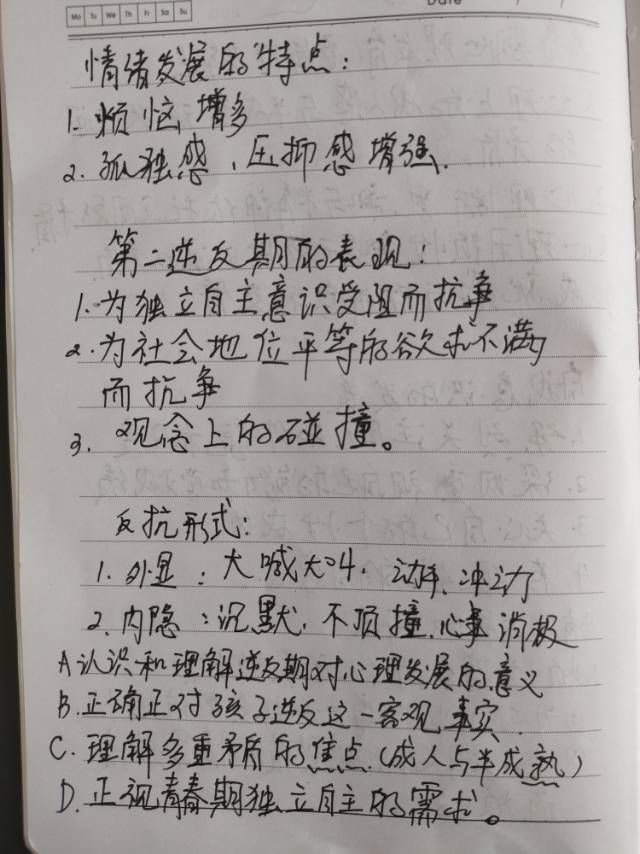 Mo Tu We Th Fr Sa Su
Date
情绪发展的特点：
1. 烦恼增多
2. 孤独感、压抑感增强.
第二逆反期的表现：
1. 为独立自主意识受阻而抗争
2. 为社会地位平等的欲求不满
而抗争
3. 观念上的碰撞。
反抗形式：
1. 外显：大喊大叫. 动手、冲动
2. 内隐：沉默. 不顶撞. 心事 消极
A 认识和理解逆反期对心理发展的意义
B. 正确正对孩子逆反这一客观事实.
C. 理解多重矛盾的焦点（成人与半成熟）
D. 正视青春期独立自主的需求。